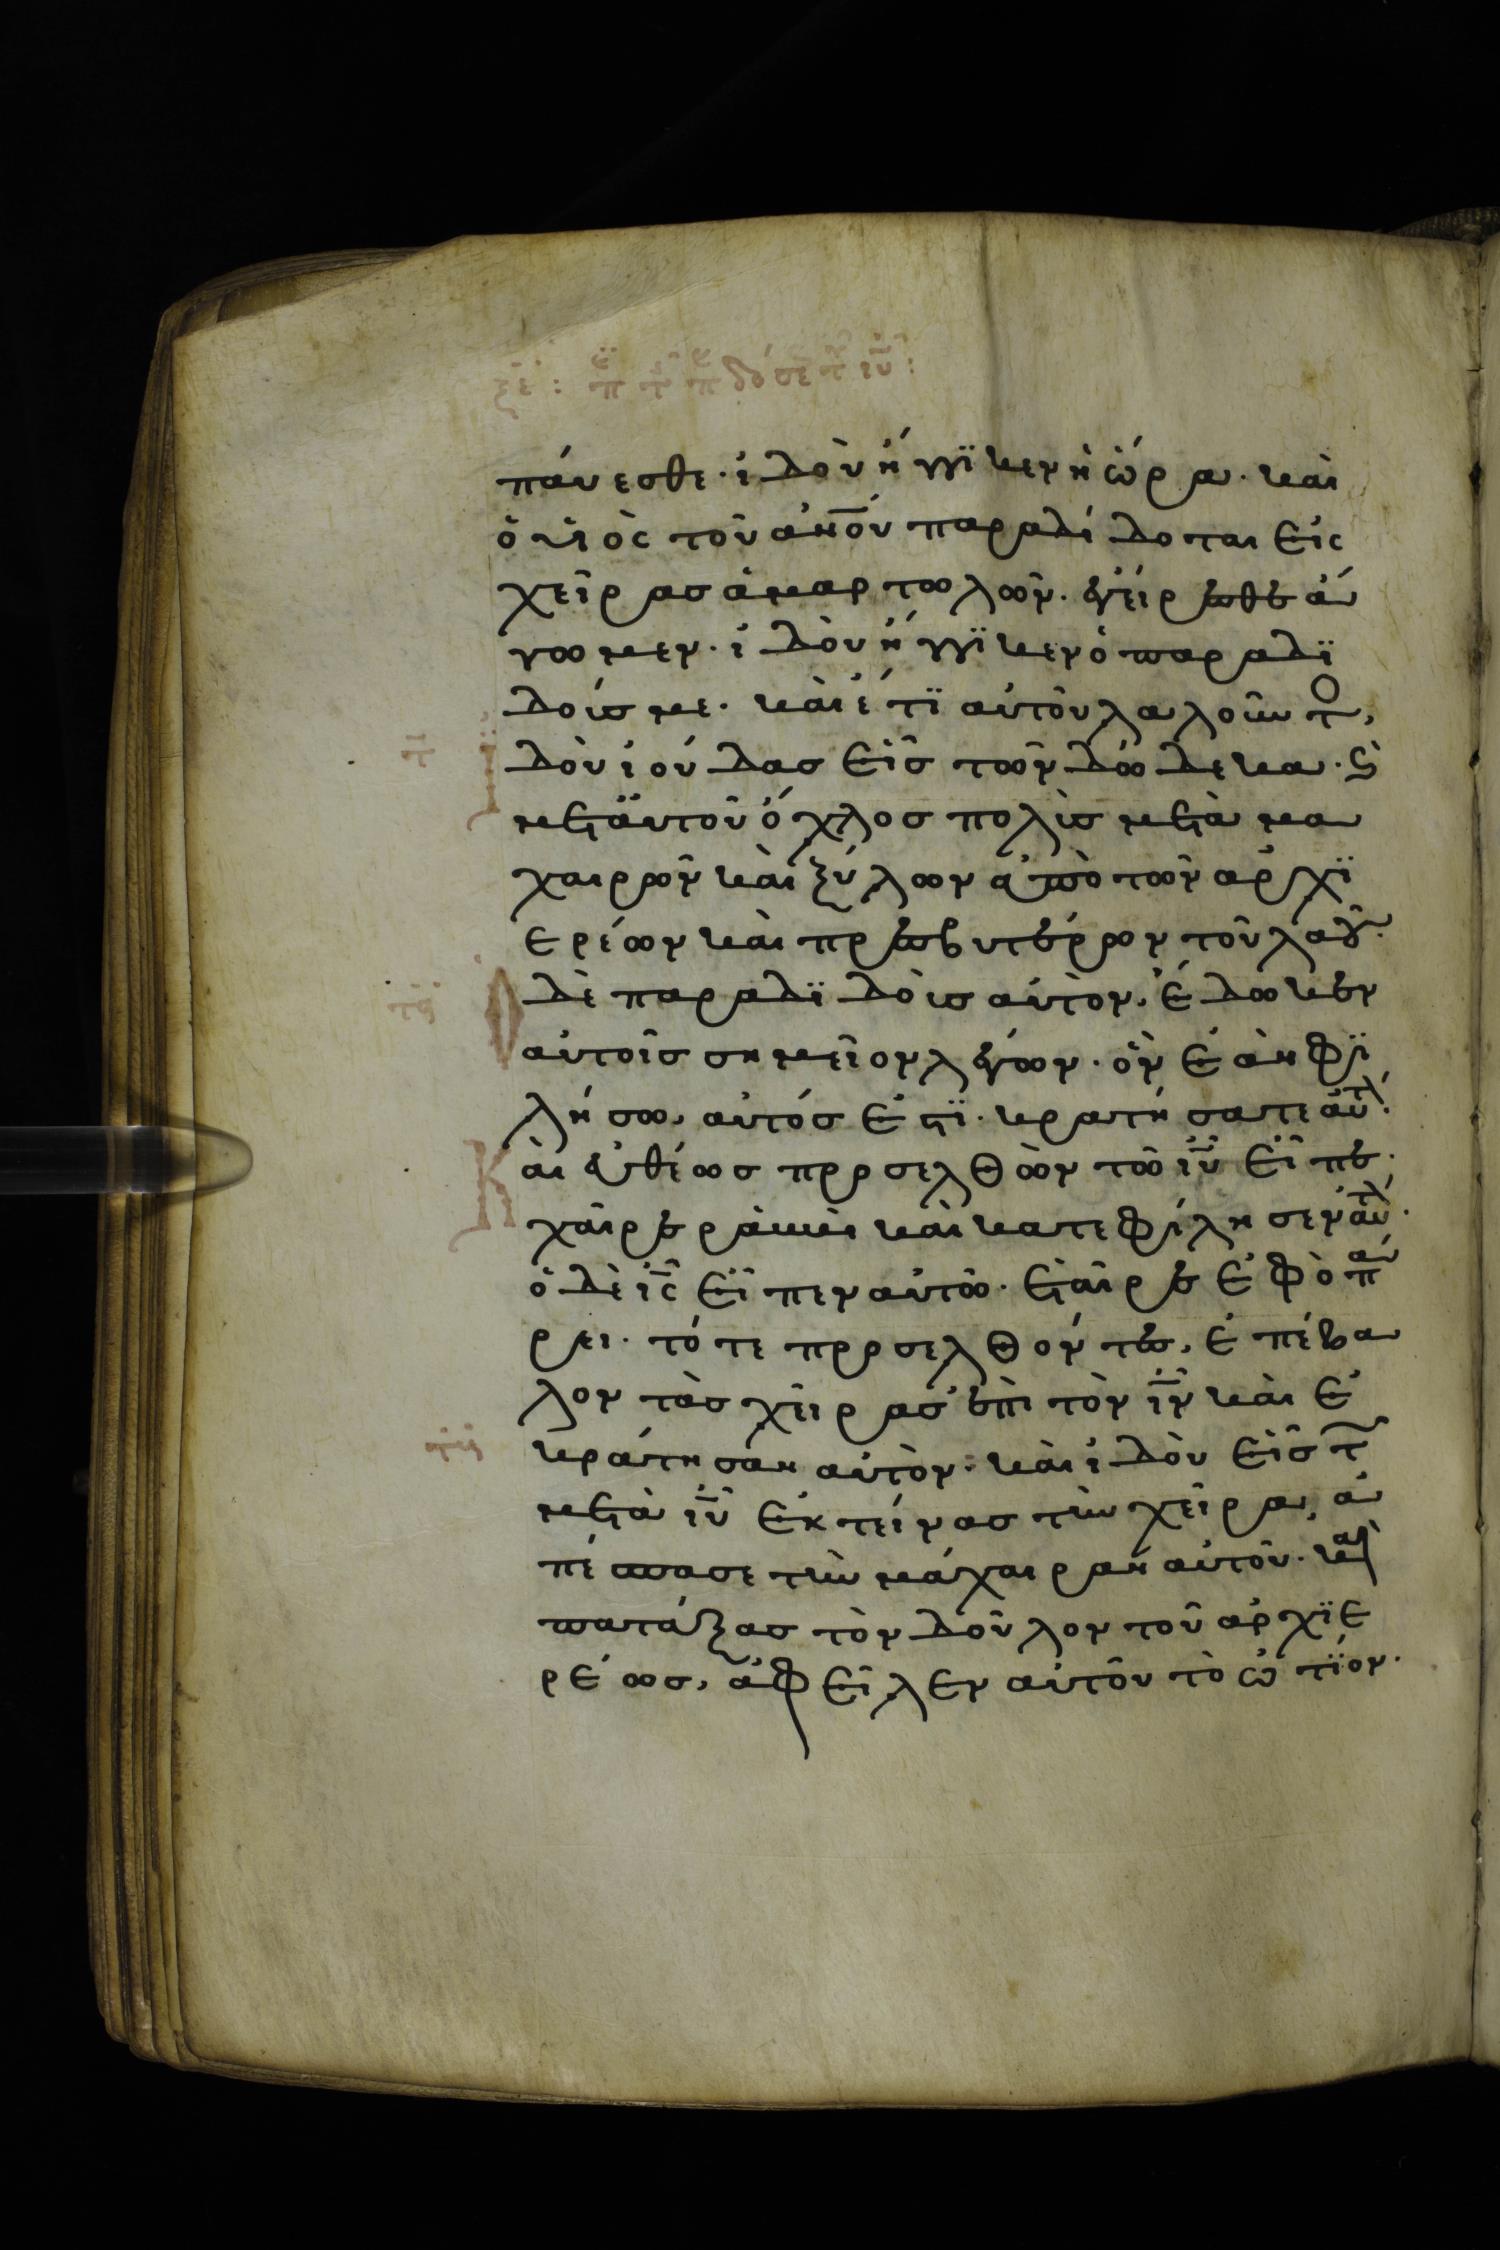 ξε : π τ π δόσε τ ιῦ :
πάυεσθε · ἰδοὺ ἤγγϊκεν ἡ ὥρα · καὶ
ὁ υἱὸς τοῦ ἀν̅ο̅ύ παραδίδοται εἰς
χεῖρας ἁμαρτωλῶν · ἐγείρεσθε ἄ
γωμεν · ἰδοὺ ἤγγϊκεν ὁ παραδϊ
δούς με · καὶ ἔτϊ αὐτοῦ λαλοῦντο,
ϊδοὺ ἰούδας εἷς τῶν δώδεκα · ϗ
μετἀυτοῦ ὄχλος πολὺς μετὰ μα
χαιρῶν καὶ ξύλων ἀπὸ τῶν ἀρχϊ
ερέων καὶ πρεσβυτέρων τοῦ λαοῦ ·
ὁ δὲ παραδϊδοὺς αὐτὸν, ἔδωκεν
αὐτοῖς σημεῖον λέγων · ὃν ἐὰν φϊ
λήσω, αὐτός ἐστϊ · κρατήσατε αὐτ ·
Καὶ εὐθέως προσελθὼν τῶ ιῦ εἶπε ·
χαῖρε ῥαββὶ καὶ κατεφίλησεν αὐτ ·
ὁ δὲ ις εἶπεν αὐτῶ · ἑταῖρε ἐφ ὃ πά
ρει · τότε προσελθόντες, ἐπέβα
λον τὰς χεῖρας ἐπὶ τὸν ιν καὶ ἐ
κράτησαν αὐτὸν · καὶ ἰδοὺ εἷς τ
μετὰ ιῦ ἐκτείνας τὴν χεῖρα, ἀ
πέσπασε τὴν μάχαιραν αὐτοῦ · καὶ
πατάξας τὸν δοῦλον τοῦ ἀρχϊε
ρέως, ἀφεῖλεν αὐτοῦ τὸ ὠτϊον ·